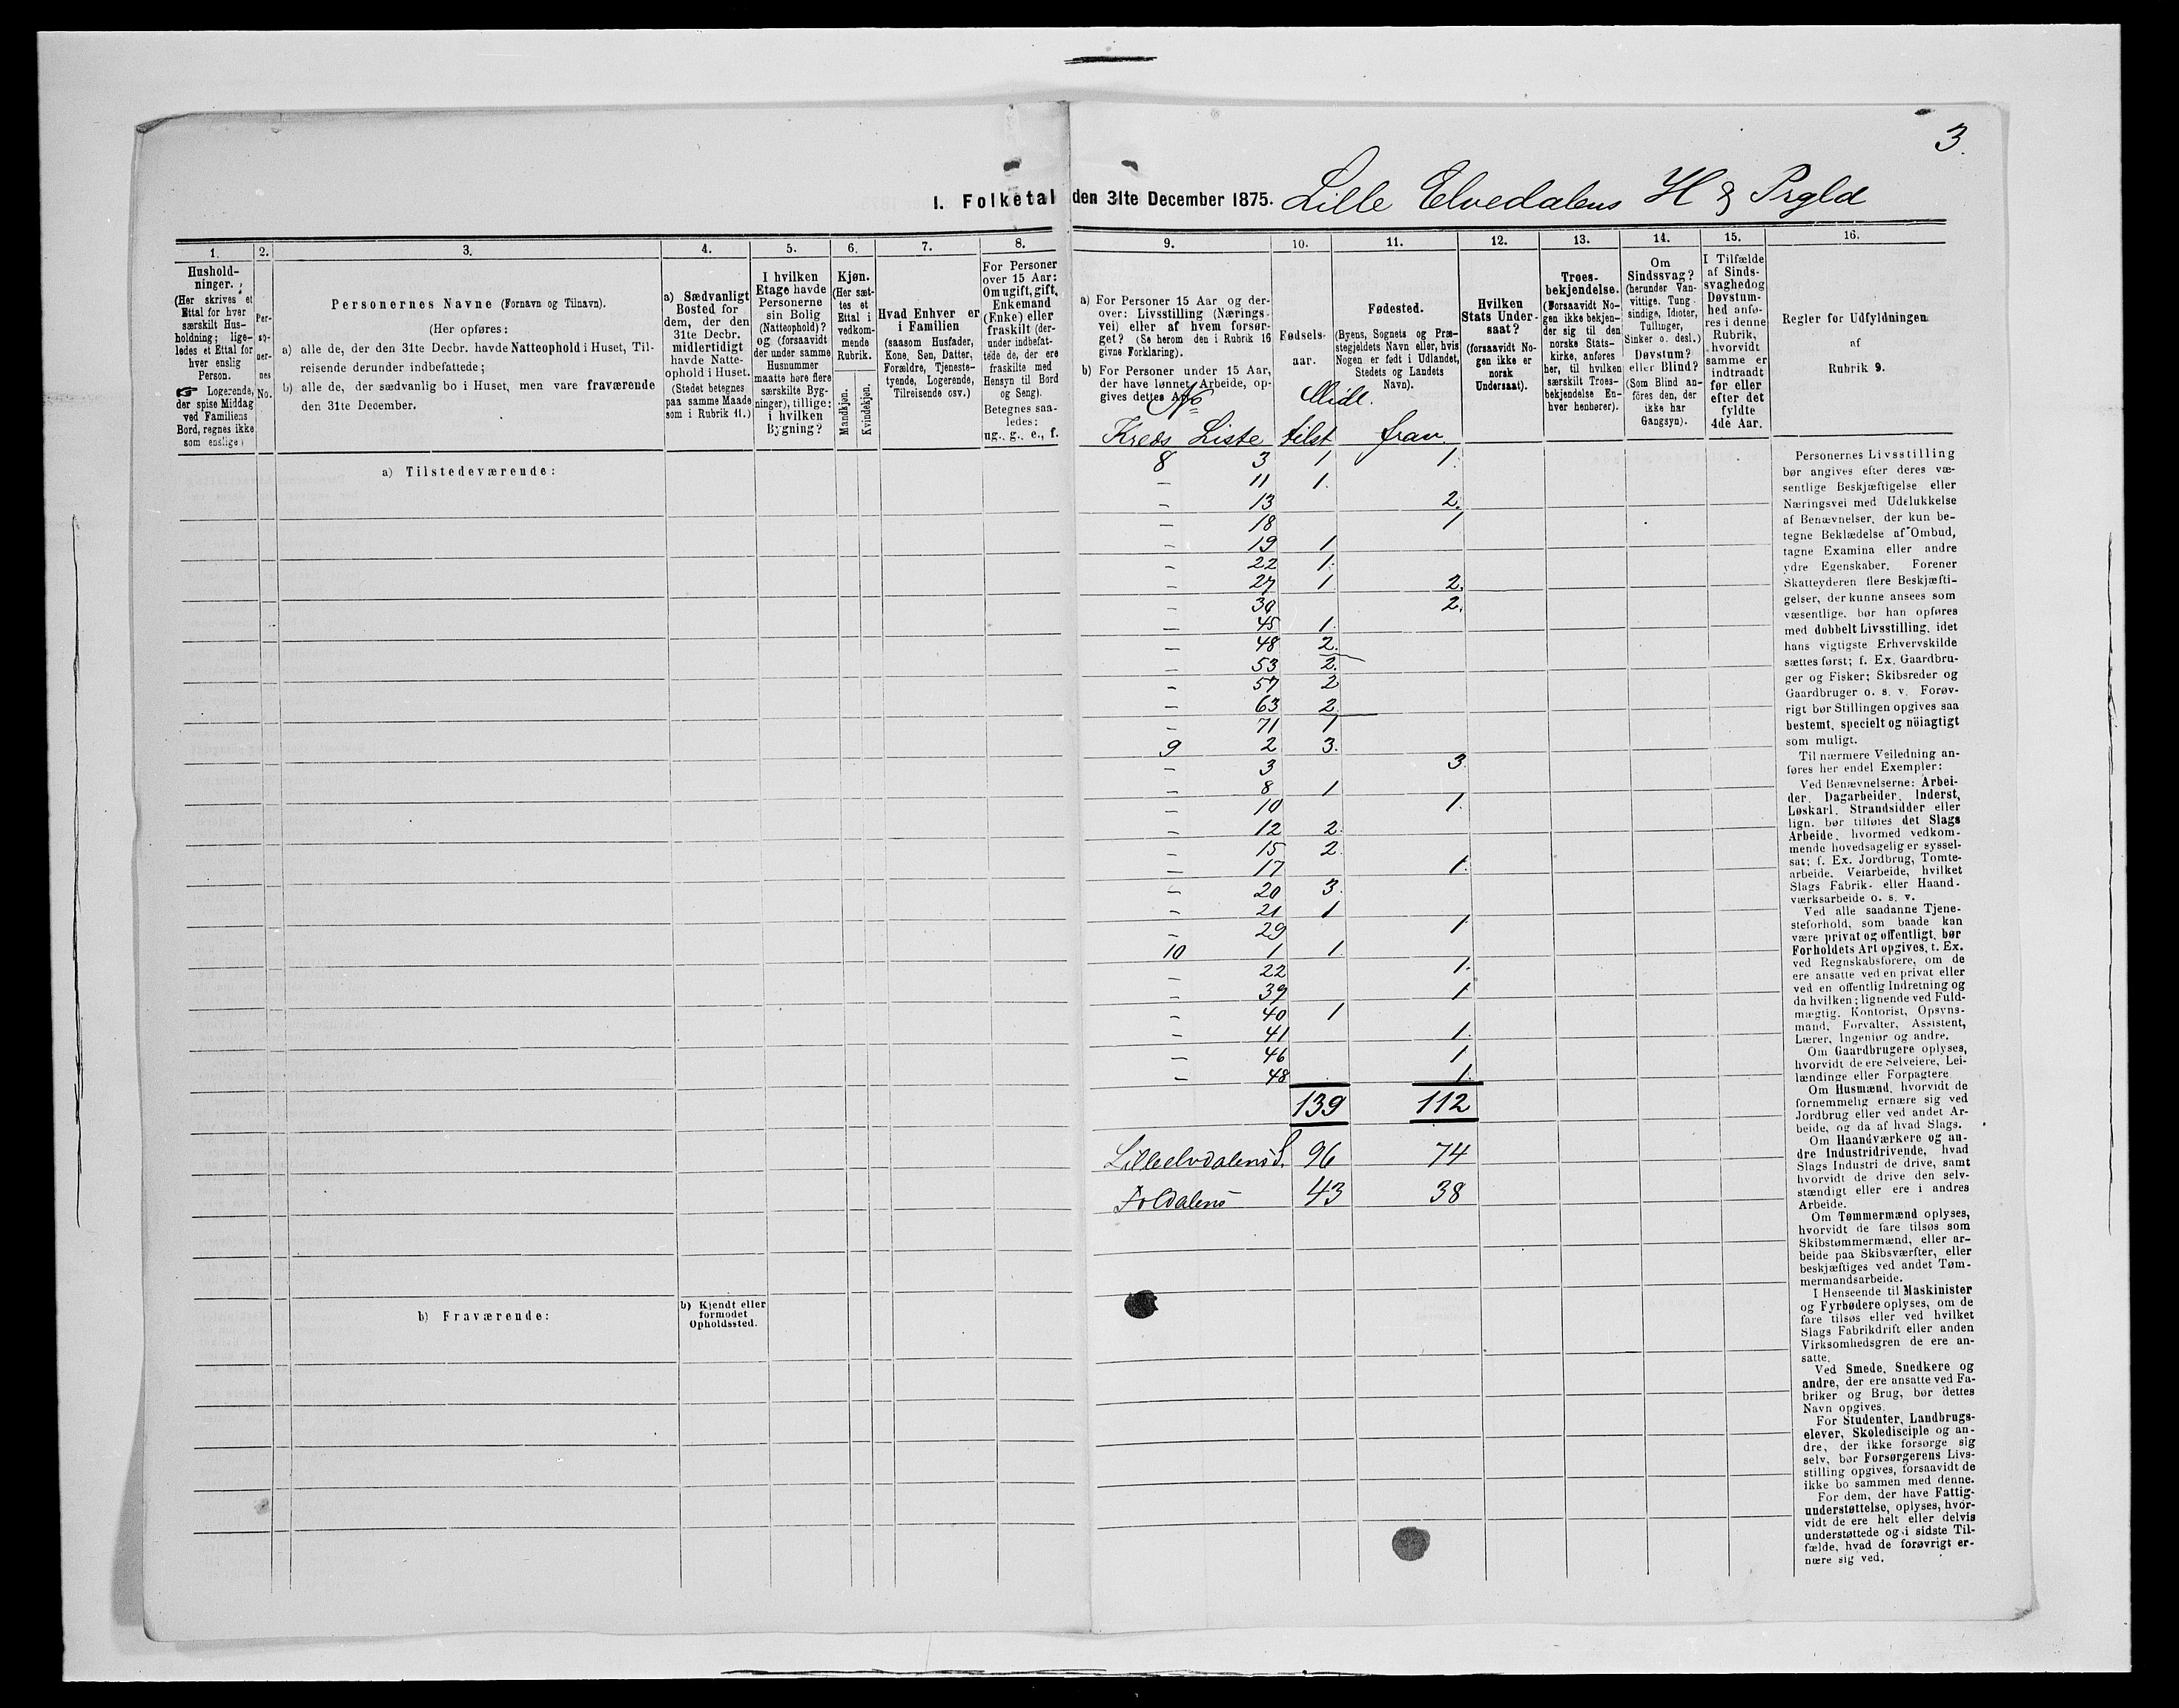 3.
I. Folketal den 31te December 1875. Lille Elvedalens H & Prgld
1. 2. 3. 4. 5. 6. 7. 8. 9. 10. 11. 12. 13. 14. 15. 16.
Hushold-
ninger.
(Her skrives et
Ettal for hver
særskilt Hus-
holdning; lige-
ledes et Ettal for
hver enslig
Person.
☞ Logerende,
der spise Middag
ved Familiens
Bord, regnes ikke
som enslige)
Per-
so-
ner-
nes
No.
Personernes Navne (Fornavn og Tilnavn).
(Her opføres:
a) alle de, der den 31te Decbr. havde Natteophold i Huset, Til-
reisende derunder indbefattede;
b) alle de, der sædvanlig bo i Huset, men vare fraværende
den 31te December.
a) Sædvanligt
Bosted for
dem, der den
31te Decbr.
midlertidigt
havde Natte-
ophold i Huset.
(Stedet betegnes
paa samme Maade
som i Rubrik 11.)
I hvilken
Etage havde
Personerne
sin Bolig
(Natteophold)?
og (forsaavidt
der under samme
Husnummer
maatte høre flere
særskilte Byg-
ninger), tillige:
i hvilken
Bygning?
Kjøn.
(Her sæt-
tes et
Ettal i
vedkom-
mende
Rubrik.
Mandkjøn.
Kvindekjøn.
Hvad Enhver er
i Familien
(saasom Husfader,
Kone, Søn, Datter,
Forældre, Tjeneste-
tyende, Logerende,
Tilreisende osv.)
For Personer
over 15 Aar:
Om ugift, gift,
Enkemand
(Enke) eller
fraskilt (der-
under indbefat-
tede de, der ere
fraskilte med
Hensyn til Bord
og Seng).
Betegnes saa-
ledes:
ug., g., e., f.
a) For Personer 15 Aar og der-
over: Livsstilling (Nærings-
vei) eller af hvem forsør-
get? (Se herom den i Rubrik 16
givne Forklaring).
b) For Personer under 15 Aar,
der have lønnet Arbeide, op-
gives dettes Art.
Fødsels-
aar.
Fødested.
(Byens, Sognets og Præ-
stegjeldets Navn eller, hvis
Nogen er født i Udlandet,
Stedets og Landets
Navn).
Hvilken
Stats Under-
saat?
(forsaavidt No-
gen ikke er
norsk
Undersaat).
Troes-
bekjendelse.
(Forsaavidt No-
gen ikke bekjen-
der sig til den
norske Stats-
kirke, anføres
her, til hvilken
særskilt Troes-
bekjendelse En-
hver henhører).
Om
Sindssvag?
(herunder Van-
vittige, Tung-
sindige, Idioter,
Tullinger,
Sinker o. desl.)
Døvstum?
eller Blind?
(Som Blind an-
føres den, der
ikke har
Gangsyn).
I Tilfælde
af Sinds-
svaghed og
Døvstum-
hed anfø-
res i denne
Rubrik,
hvorvidt
samme er
indtraadt
før eller
efter det
fyldte
4de Aar.
Regler for Udfyldningen
af
Rubrik 9.
No Midl.
Kreds Liste tilst frav.
a) Tilstedeværende:
8 3 1 1.
– 11 1.
– 13 2.
– 18 1
– 19 1
– 22 1.
– 27 1 2.
– 30 2.
– 45 1.
– 48 2.
– 53 2.
– 57 2
– 63 2
– 71 1
9 2 3.
– 3 3
– 8 1
– 10 1.
– 12 2.
– 15 2.
– 17 1.
– 20 3.
– 21 1
– 29 1
10 1 1.
– 22 1.
– 39 1
– 40 1
– 41 1.
– 46 1
– 48 1.
139 112
Lilleelvdalens S. 96 74
Foldalens 43 38
b) Fraværende:
b) Kjendt eller
formodet
Opholdssted.
Personernes Livsstilling
bør angives efter deres væ-
sentlige Beskjæftigelse eller
Næringsvei med Udelukkelse
af Benævnelser, der kun be-
tegne Beklædelse af Ombud,
tagne Examina eller andre
ydre Egenskaber. Forener
Skatteyderen flere Beskjæfti-
gelser, der kunne ansees som
væsentlige, bør han opføres
med dobbelt Livsstilling, idet
hans vigtigste Erhvervskilde
sættes først; f. Ex. Gaardbru-
ger og Fisker; Skibsreder og
Gaardbruger o. s. v. Forøv-
rigt bør Stillingen opgives saa
bestemt, specielt og nöiagtigt
som muligt.
Til nærmere Veiledning an-
føres her endel Exempler:
Ved Benævnelserne: Arbei-
der, Dagarbeider, Inderst,
Løskarl, Strandsidder eller
lign. bør tilføies det Slags
Arbeide, hvormed vedkom-
mende hovedsagelig er syssel-
sat; f. Ex. Jordbrug, Tomte-
arbeide, Veiarbeide, hvilket
Slags Fabrik- eller Haand-
værksarbeide o. s. v.
Ved alle saadanne Tjene-
steforhold, som baade kan
være privat og offentligt, bør
Forholdets Art opgives, t. Ex.
ved Regnskabsførere, om de
ere ansatte ved en privat eller
ved en offentlig Indretning og
da hvilken; lignende ved Fuld-
mægtig, Kontorist, Opsyns-
mand, Forvalter, Assistent,
Lærer, Ingeniør og andre.
Om Gaardbrugere oplyses,
hvorvidt de ere Selveiere, Lei-
lændinge eller Forpagtere.
Om Husmænd, hvorvidt de
fornemmelig ernære sig ved
Jordbrug eller ved andet Ar-
beide, og da af hvad Slags.
Om Haandværkere og an-
dre Industridrivende, hvad
Slags Industri de drive, samt
hvorvidt de drive den selv-
stændigt eller ere i andres
Arbeide.
Om Tømmermænd oplyses,
hvorvidt de fare tilsøs som
Skibstømmermænd, eller ar-
beide paa Skibsværfter, eller
beskjæftiges ved andet Tøm-
mermandsarbeide.
I Henseende til Maskinister
og Fyrbødere oplyses, om de
fare tilsøs eller ved hvilket
Slags Fabrikdrift eller anden
Virksomhedsgren de ere an-
satte.
Ved Smede, Snedkere og
andre, der ere ansatte ved Fa-
briker og Brug, bør dettes
Navn opgives.
For Studenter, Landbrugs-
elever, Skoledisciple og an-
dre, der ikke forsørge sig
selv, bør Forsørgerens Livs-
stilling opgives, forsaavidt de
ikke bo sammen med denne.
For dem, der have Fattig-
understøttelse, oplyses, hvor-
vidt de ere helt eller delvis
understøttede og i sidste Til-
fælde, hvad de forøvrigt er-
nære sig ved.